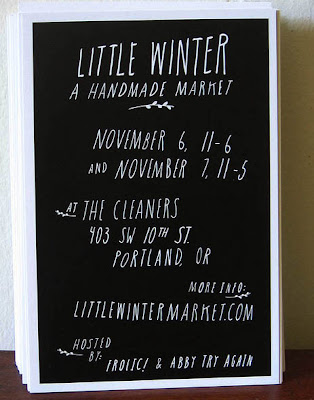 LITTLE WINTER
A HANDMADE MARKET
NOVEMBER 6, 11-6
AND NOVEMBER 7, 11-5
AT THE CLEANERS
403 SW 10TH ST.
PORTLAND, OR
MORE INFO:
LITTLEWINTERMARKET.COM
HOSTED
BY: FROLIC! & ABBY TRY AGAIN